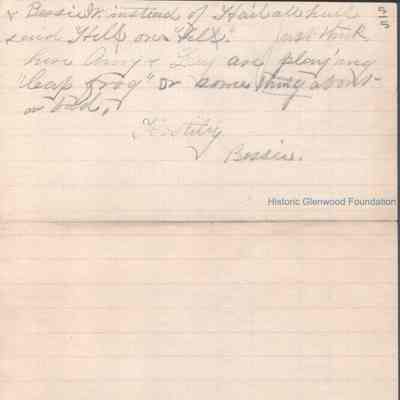 & Bessie W. instead of Hail all hail
send Hill over Hill." Just think
here Amy & Guy are playing
"leap frog" or some thing about
as bad.
Hastily
Bessie.
5/5
Historic Glenwood Foundation